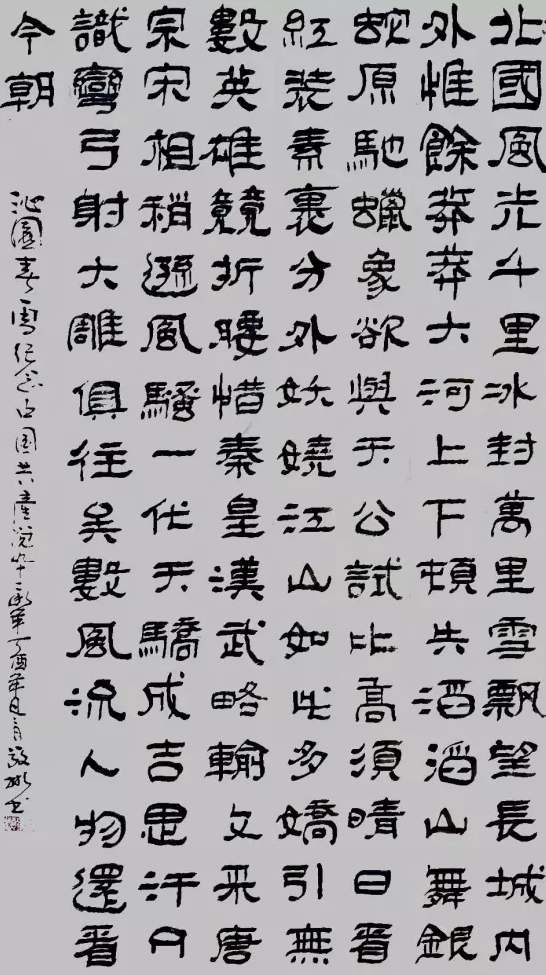 北國風光千里冰封萬里雪飄望長城内
外惟餘莽莽大河上下頓失滔滔山舞銀
蛇原馳蠟象欲與天公試比高須晴日看
紅裝素裹分外妖嬈江山如此多嬌引無
數英雄競折腰惜秦皇漢武略輸文采唐
宗宋祖稍遜風騷一代天驕成吉思汗只
識彎弓射大雕俱往矣數風流人物還看
今朝
沁園春雪纪念中国共產党 丁酉年 书